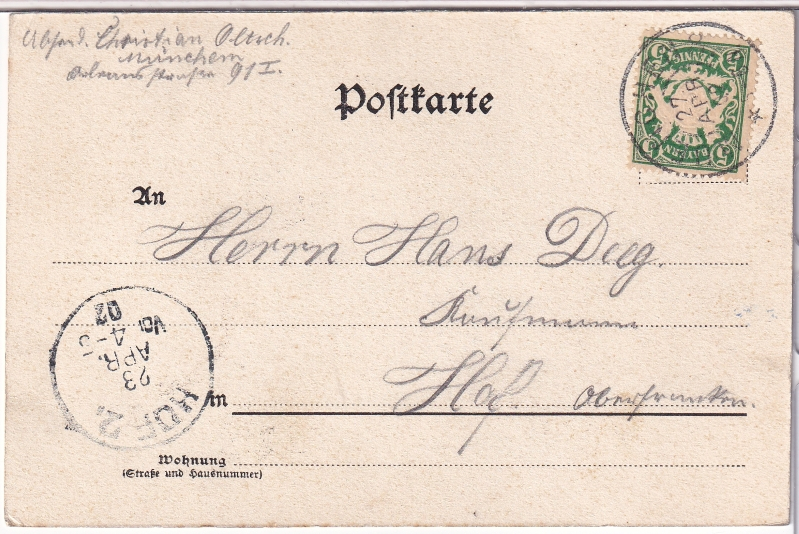 Absend. Christian Oltsch.
München
Orleansstrasse 91 I.
Postkarte
5 PFENNIG 5
5 BAYERN 5
27
APR
An
Herrn Hans Deeg.
Kaufmann
in Hof. Oberfranken.
HOF 2.
23
APR.
4-5
02
Wohnung
(Straße und Hausnummer)